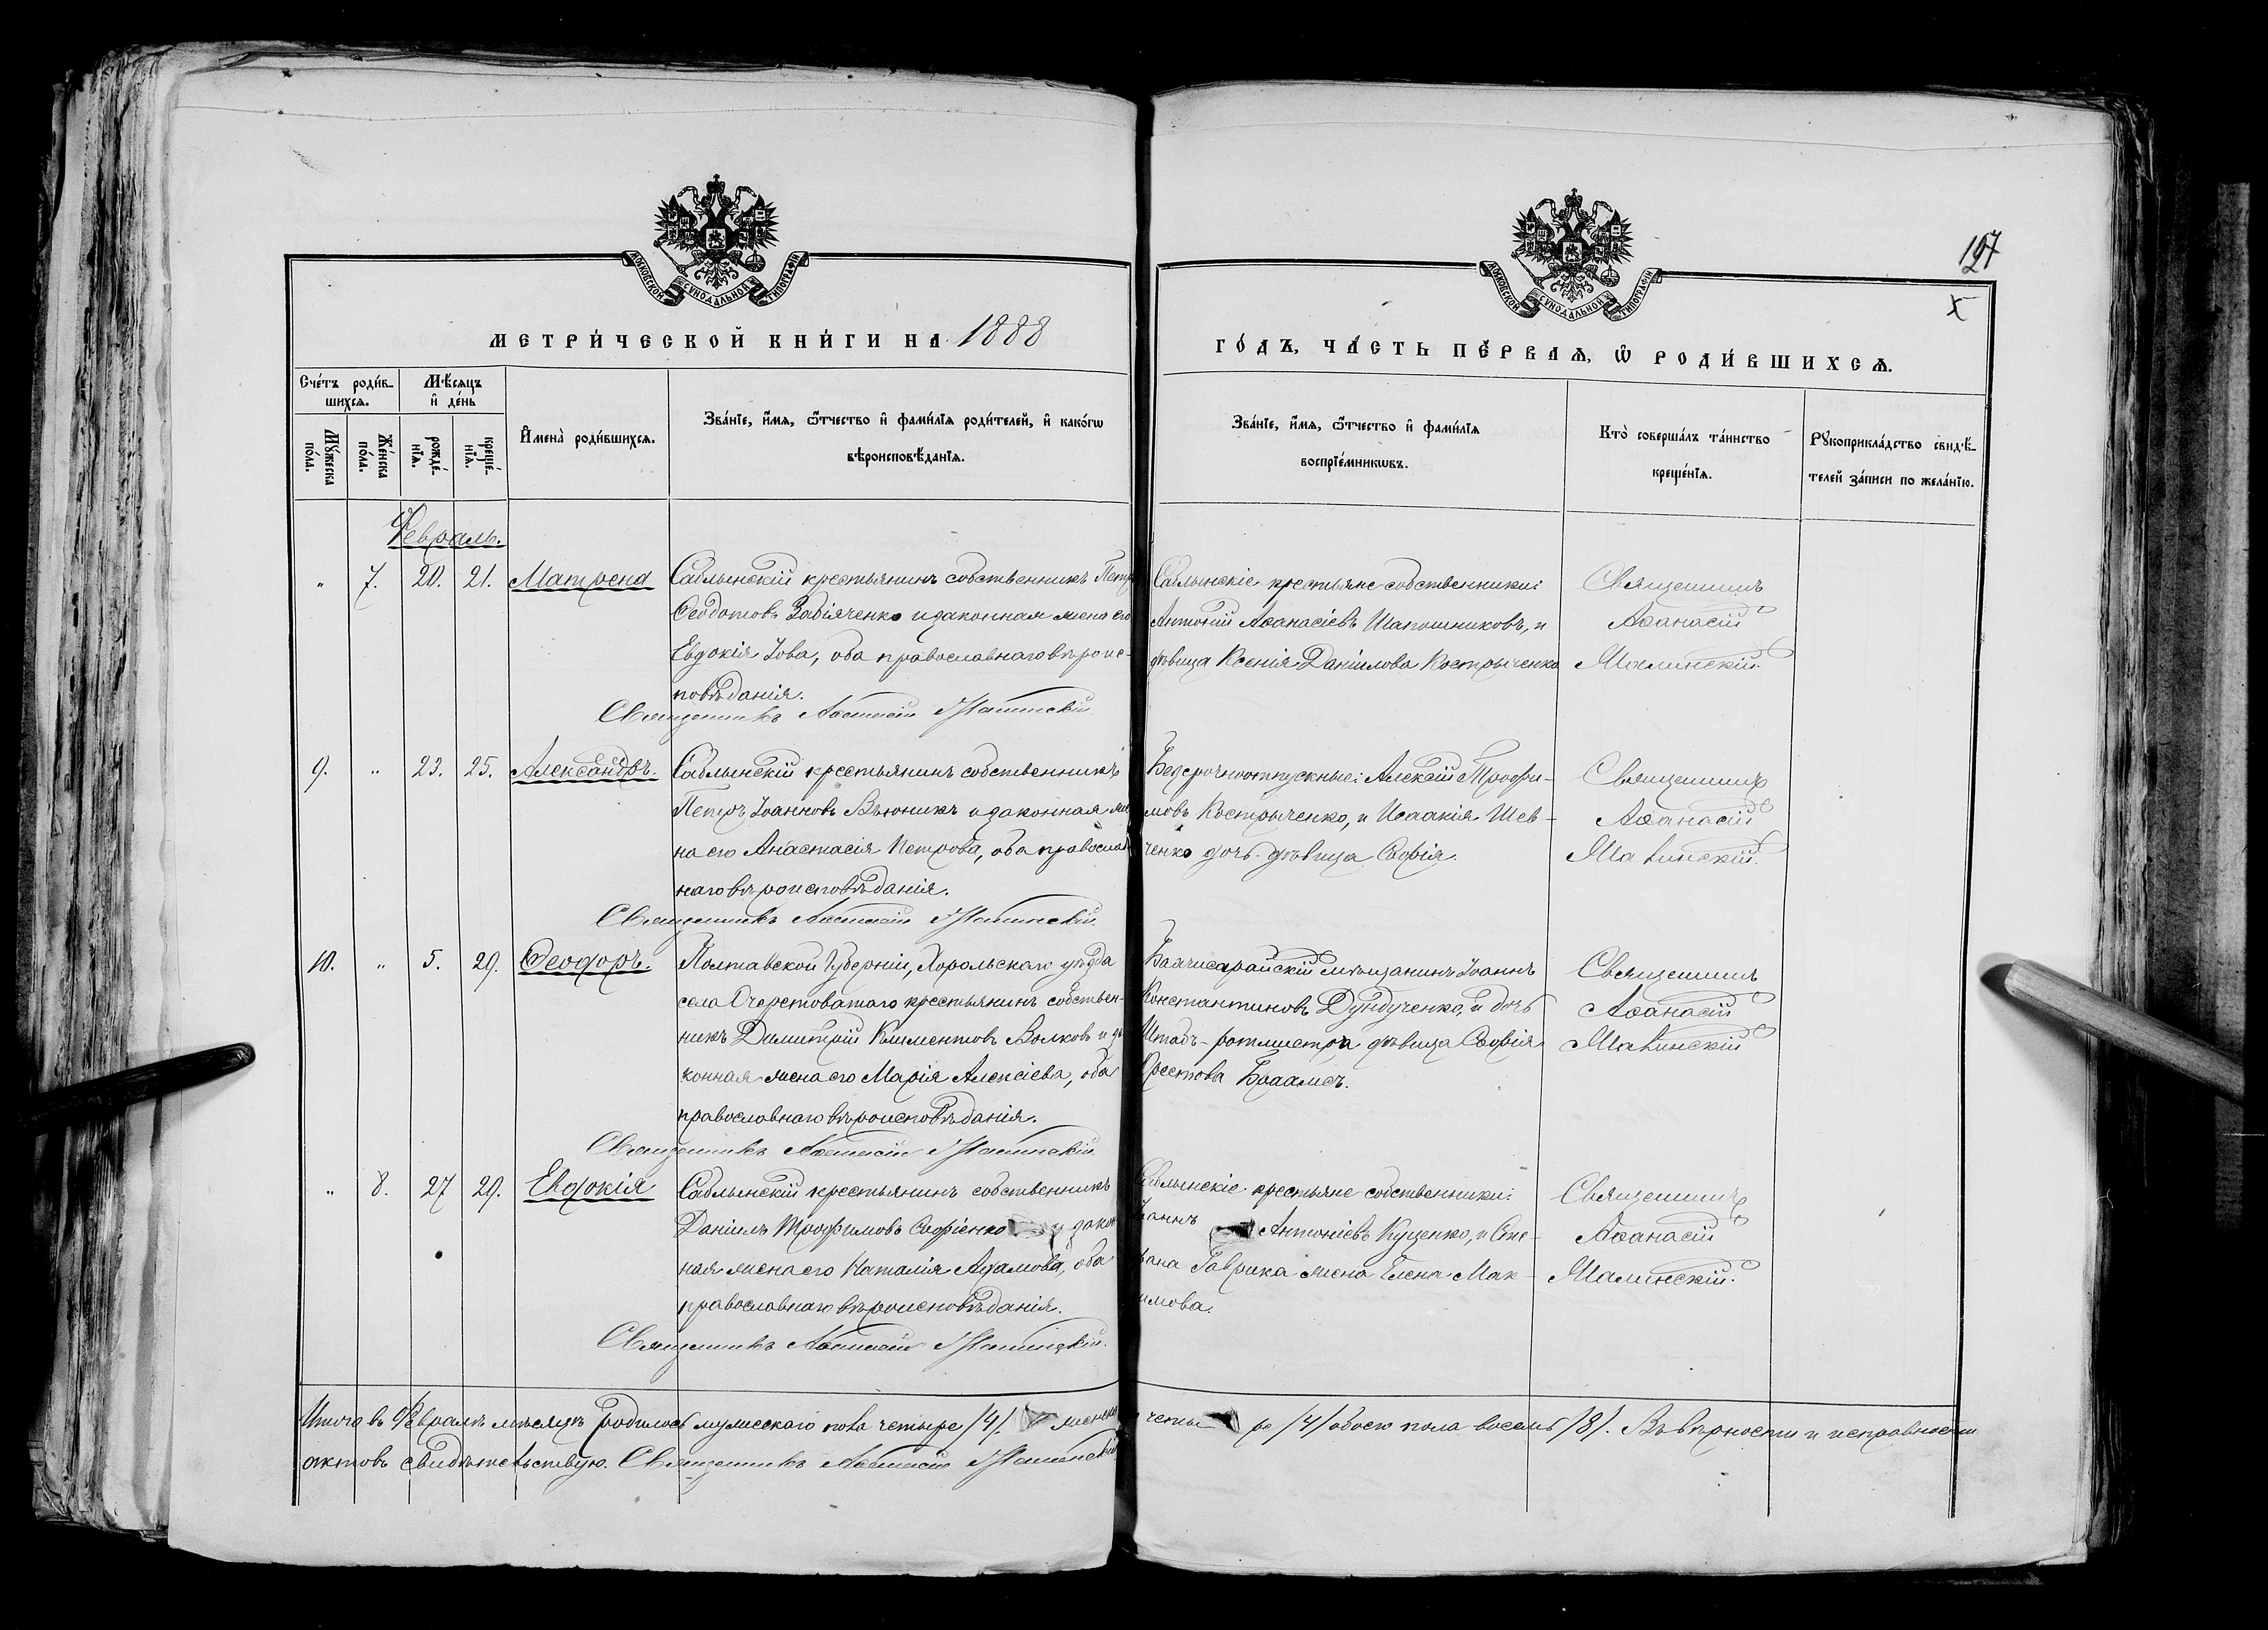 127
х
МОСКОВСКОЙ СУНОДАЛЬНОЙ ТИПОГРАФІИ
МОСКОВСКОЙ СУНОДАЛЬНОЙ ТИПОГРАФІИ
МЕТРИ́ЧЕСКОЙ КНИ́ГИ НА 1888
ГО́ДЪ, ЧА́СТЬ ПЕ́РВАѦ, Ѽ РОДИ́ВШИХСѦ.
Сче́тъ роди́в-
шихсѧ.
Мѣ́сѧцъ
и҆ де́нь
Мꙋ́жеска
по́ла.
Же́нска
по́ла.
рожде́-
нїѧ.
креще́-
нїѧ.
И҆мена̀ роди́вшихсѧ.
Зва́нїе, и҆́мѧ, ѻ҆́тчество и҆ фами́лїѧ роди́телей, и҆ како́гѡ
вѣроисповѣ́данїѧ.
Зва́нїе, и҆́мѧ, ѻ҆́тчество и҆ фами́лїѧ
воспрїе́мникѡвъ.
Кто̀ соверша́лъ та́инство
креще́нїѧ.
Рꙋкоприкла́дство свидѣ́-
телей за́писи по жела́нїю.
Февраль.
" 7. 20. 21. Матрена
Саблынскій крестьянинъ собственникъ Петръ
Ѳеодотовъ Забіяченко и законная жена его
Евдокія Іова, оба православнаго вѣроис-
повѣданія.
Священникъ Аѳанасій Малинскій
Саблынскіе крестьяне собственники:
Антоній Аѳанасіевъ Шапошниковъ, и
дѣвица Ксенія Даніилова Костыченко
Священникъ
Аѳанасій
Малинскій.
9. " 23. 25. Александръ.
Саблынскій крестьянинъ собственникъ
Петръ Іоанновъ Вьюникъ и законная же
на его Анастасія Петрова, оба православ
наго вѣроисповѣданія.
Священникъ Аѳанасій Малинскій.
Безсрочноотпускные: Алексій Трофи-
мовъ Костыченко, и Исаакія Шев-
ченко дочь дѣвица Софія.
Священникъ
Аѳанасій
Малинскій.
10. " 5. 29. Ѳеодоръ.
Полтавской Губерніи, Хорольскаго уѣзда
села Очеретоватаго крестьянинъ собствен-
никъ Димитрій Климентовъ Волковъ и за
конная жена его Марія Алексіева, оба
православнаго вѣроисповѣданія.
Священникъ Аѳанасій Малинскій
Бахчисарайскій мѣщанинъ Іоаннъ
Константиновъ Дундученко, и дочь
Штабъ-ротмистра дѣвица Софія
Орестова Браамсъ.
Священникъ
Аѳанасій
Малинскій
" 8. 27 29. Евдокія
Саблынскій крестьянинъ собственникъ
Даніилъ Трофимовъ Софіенко и закон
ная жена его Наталія Адамова, оба
православнаго вѣроисповѣданія.
Священникъ Аѳанасій Малинскій.
Саблынскіе крестьяне собственники:
Іоаннъ Антоніевъ Куценко, и Сте-
фана Гаврика жена Елена Мак-
имова.
Священникъ
Аѳанасій
Малинскій.
Итого въ Февралѣ мѣсяцѣ родилось мужескаго пола четыре /4/. женска четы ре /4/ обоего пола восемь /8/. Въ вѣрности и исправности
актовъ свидѣтельствую. Священникъ Аѳанасій Малинскій